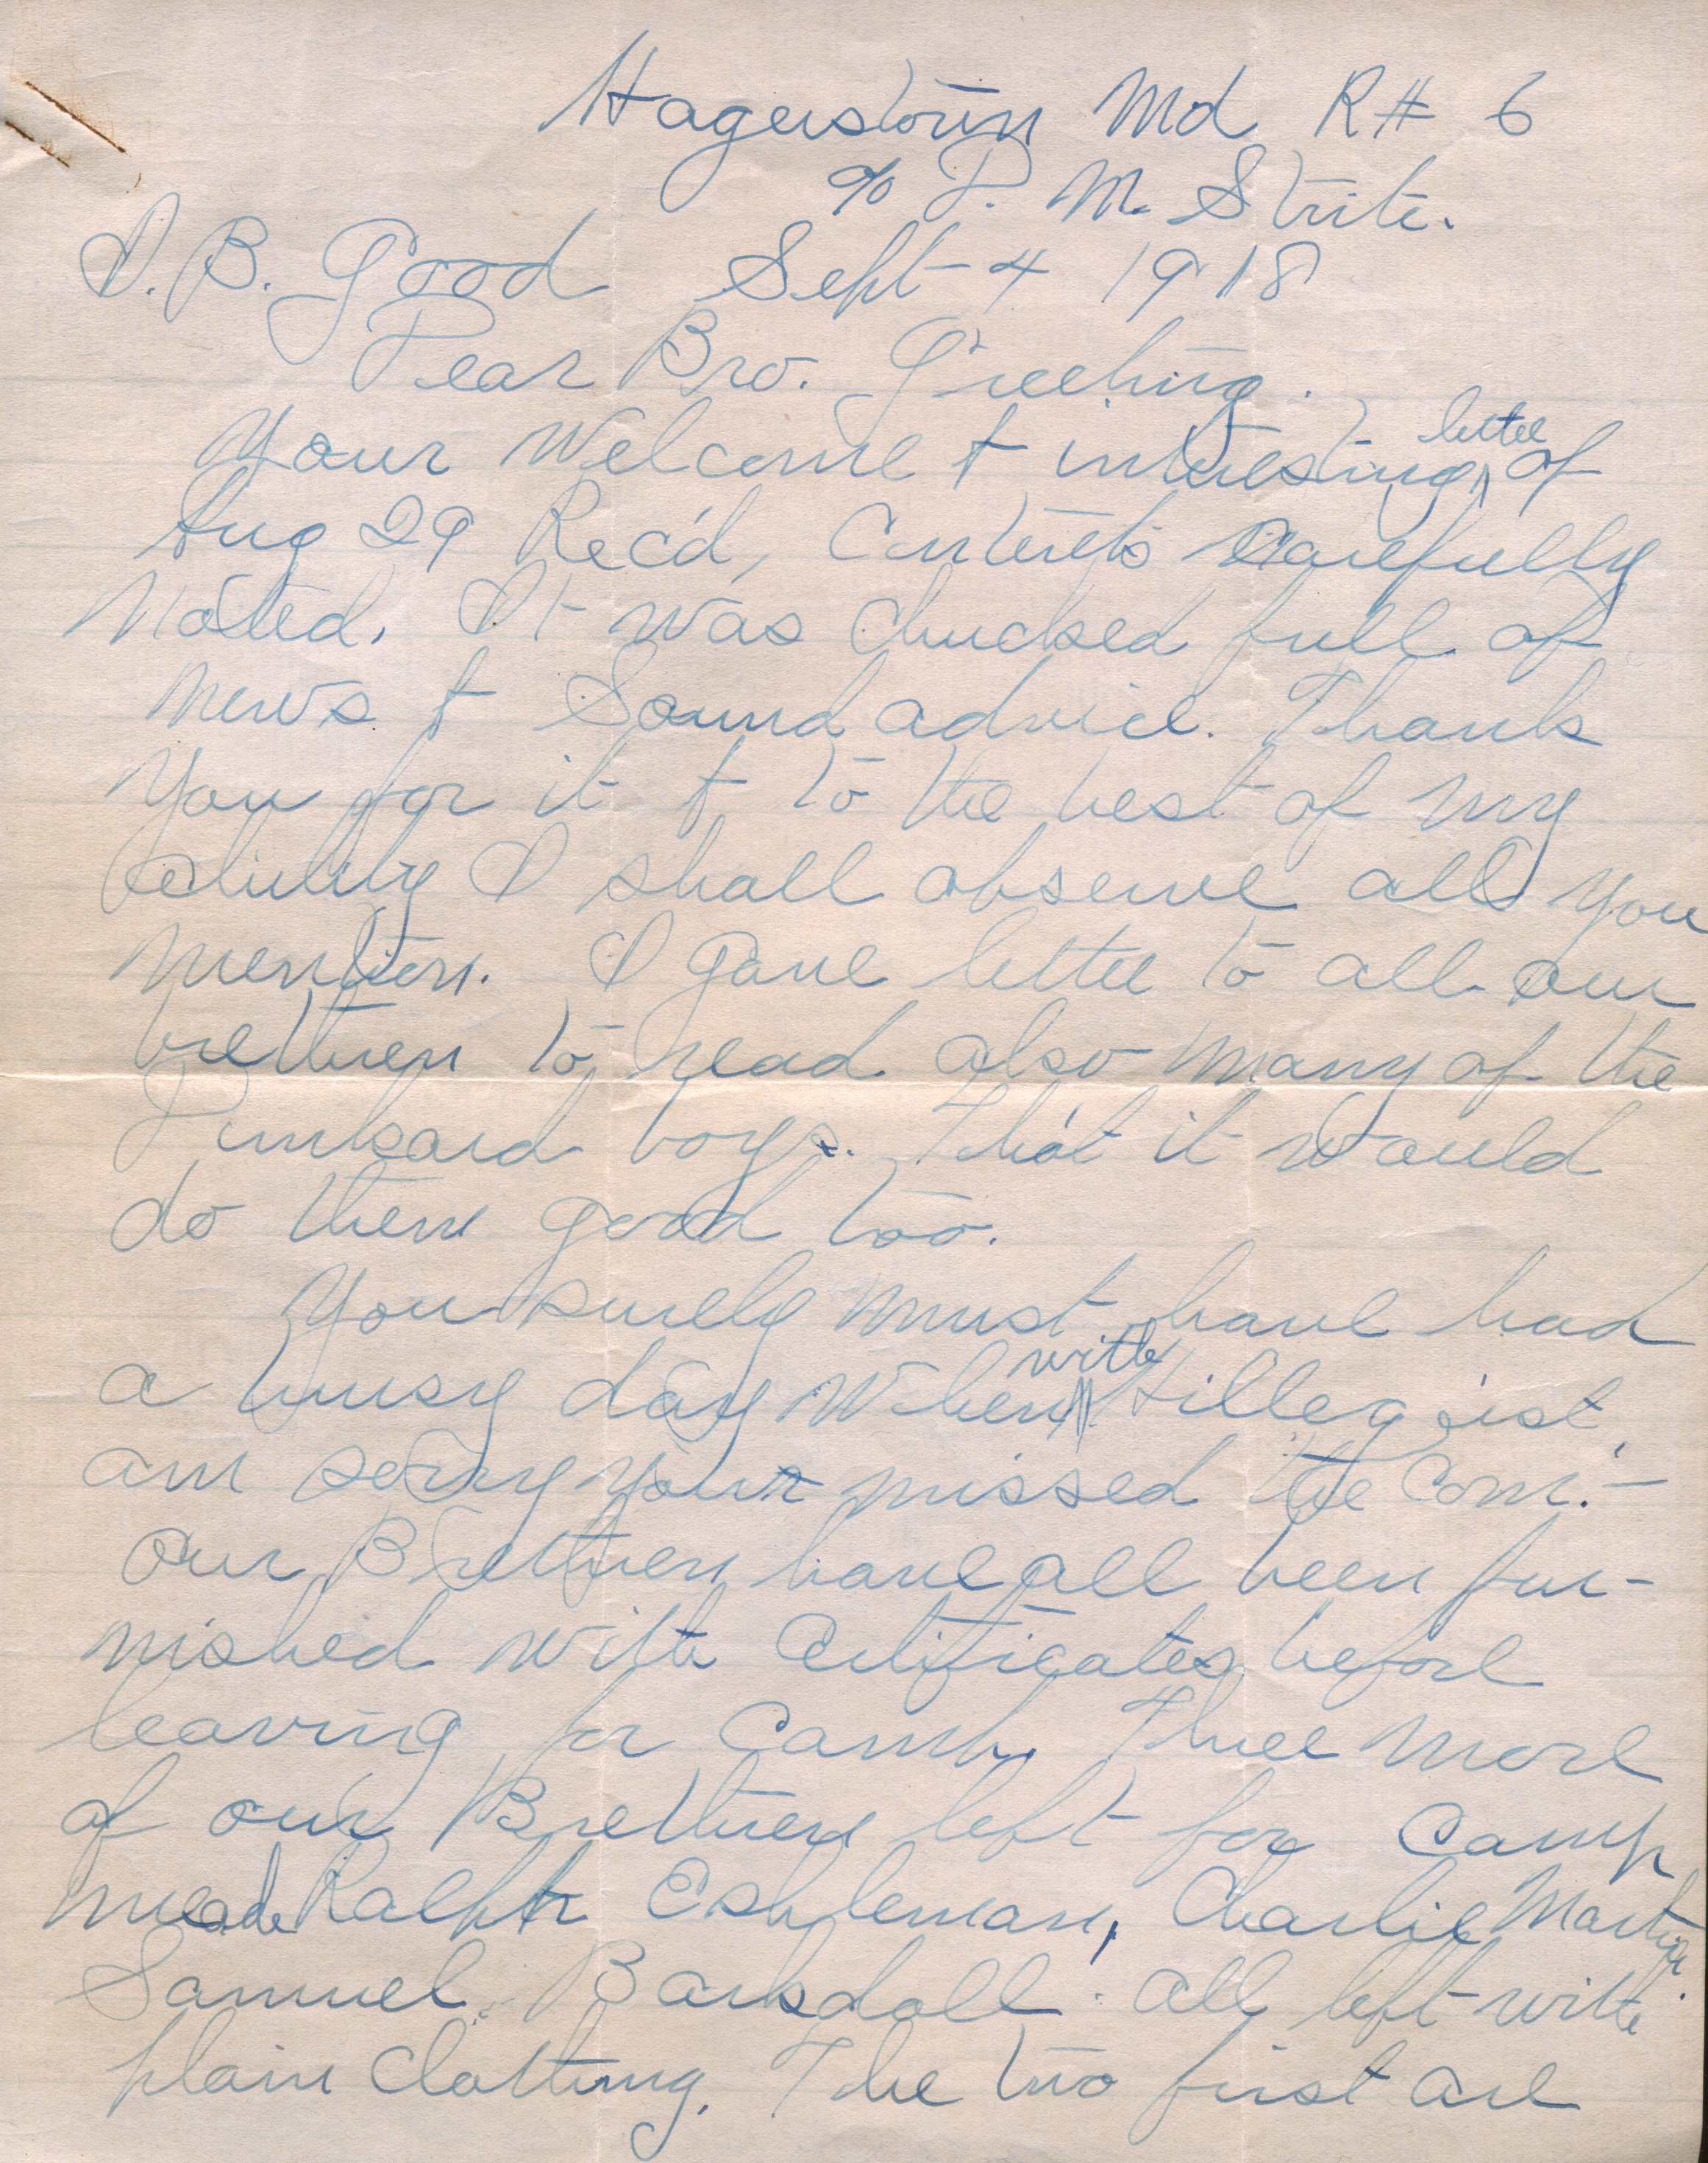 Hagerstown Md R# 6
% D. M. Strite.
I. B. Good Sept 4 1918
Dear Bro. Greeting.
Your Welcome & intresting letter of
Aug 29 Rec'd, Contents Carefully
Noted. It was chucked full of
News & Sound advice. Thank
You for it & to the best of my
ability I shall observe all you
mention. I gave letter to all our
brethren to read also many of the
Dunkard boys. That it would
do them good too.
You surely must have had
a busy day When with Hillegeist,
am sorry your missed the Com.-
Our Brethren have all been fur-
nished with Certificates before
leaving for Camp. Three more
of our Brethren left for Camp
Meade Ralph Eshleman, Charlie Martin
Samuel Barkdoll. all left with
plain Clothing. The two first are